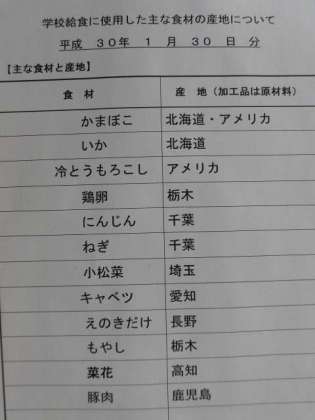 学校給食に使用した主な食材の産地について
平成 30年 1 月 30 日 分
【主な食材と産地】
食 材 産 地（加工品は原材料）
かまぼこ 北海道・アメリカ
いか 北海道
冷とうもろこし アメリカ
鶏卵 栃木
にんじん 千葉
ねぎ 千葉
小松菜 埼玉
キャベツ 愛知
えのきだけ 長野
もやし 栃木
菜花 高知
豚肉 鹿児島